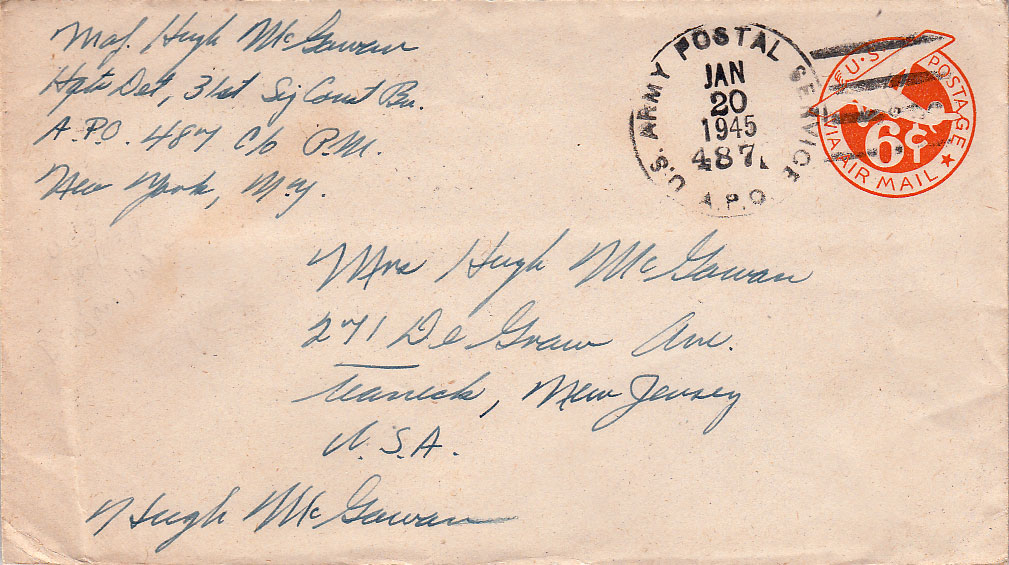 Maj. Hugh McGowan
Hqts Det, 31st Sig Const Bn.
A.P.O. 487 c/o P.M.
New York, N.Y.
U.S. ARMY POSTAL SERVICE
JAN
20
1945
487
A.P.O.
U.S. POSTAGE
6¢
VIA AIR MAIL
Mrs Hugh McGowan
271 De Graw Ave.
Teaneck, New Jersey
U.S.A.
Hugh McGowan